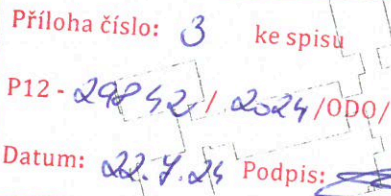 Příloha číslo: 3 ke spisu
P12 - 29842 / 2024 /ODO/
Datum: 22.7.24 Podpis: